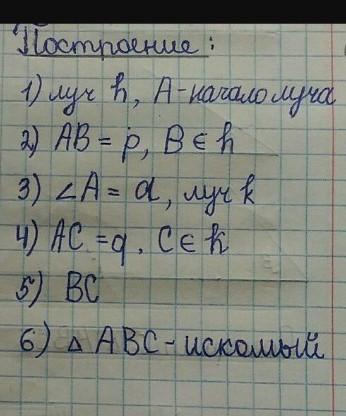 Построение:
1) луч h, A-начало луча
2) AB = p, B ∈ h
3) ∠A = α, луч k
4) AC = q, C ∈ k
5) BC
6) △ ABC - искомый